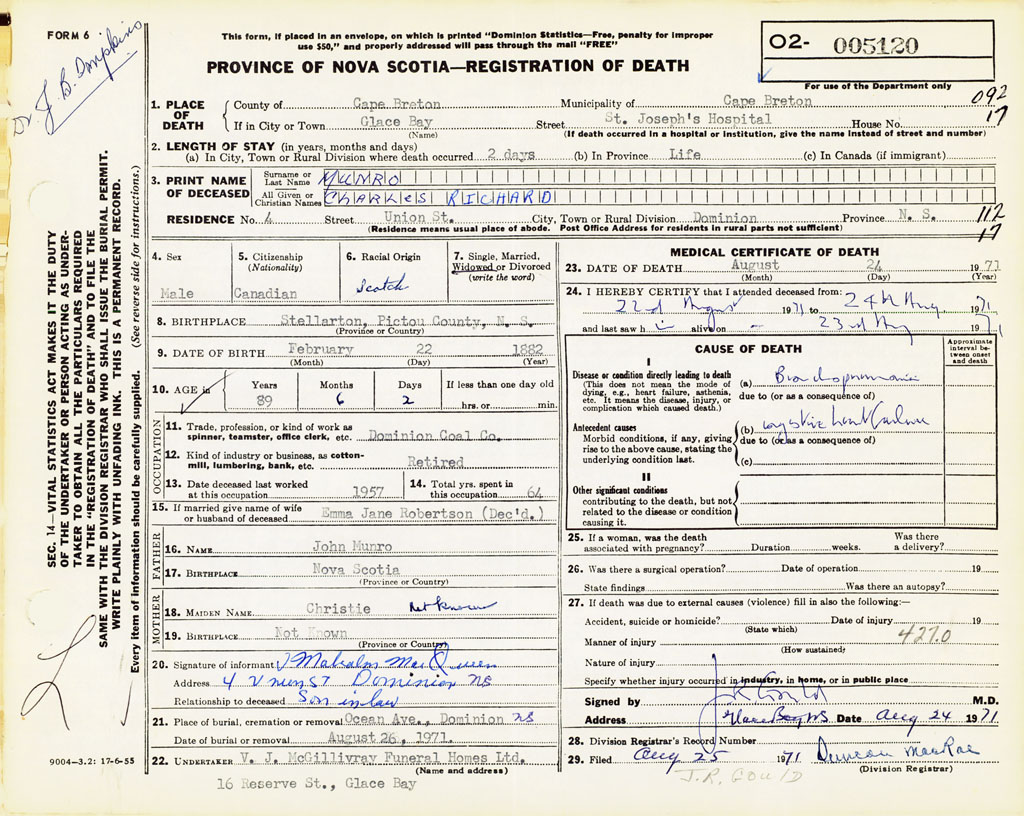 FORM 6
Dr. J. B. Dompkins
This form, if placed in an envelope, on which is printed "Dominion Statistics—Free, penalty for improper
use $50," and properly addressed will pass through the mail "FREE"
PROVINCE OF NOVA SCOTIA—REGISTRATION OF DEATH
O2- 005120
For use of the Department only
092
17
1. PLACE OF DEATH County of Cape Breton Municipality of Cape Breton
If in City or Town Glace Bay Street St. Joseph's Hospital House No.
(Name) (If death occurred in a hospital or institution, give the name instead of street and number)
2. LENGTH OF STAY (in years, months and days)
(a) In City, Town or Rural Division where death occurred 2 days (b) In Province Life (c) In Canada (if immigrant)
3. PRINT NAME OF DECEASED Surname or Last Name MUNRO
All Given or Christian Names CHARLES RICHARD
RESIDENCE No. 4 Street Union St. City, Town or Rural Division Dominion Province N. S.
(Residence means usual place of abode. Post Office Address for residents in rural parts not sufficient)
112
17
4. Sex Male
5. Citizenship (Nationality) Canadian
6. Racial Origin Scotch
7. Single, Married, Widowed or Divorced (write the word)
8. BIRTHPLACE Stellarton, Pictou County, N. S.
(Province or Country)
9. DATE OF BIRTH February 22 1882
(Month) (Day) (Year)
10. AGE in Years Months Days If less than one day old
89 6 2 hrs. or min.
OCCUPATION
11. Trade, profession, or kind of work as spinner, teamster, office clerk, etc. Dominion Coal Co.
12. Kind of industry or business, as cotton-mill, lumbering, bank, etc. Retired
13. Date deceased last worked at this occupation 1957
14. Total yrs. spent in this occupation 64
15. If married give name of wife or husband of deceased Emma Jane Robertson (Dec'd.)
FATHER
16. NAME John Munro
17. BIRTHPLACE Nova Scotia
(Province or Country)
MOTHER
18. MAIDEN NAME Christie Not known
19. BIRTHPLACE Not Known
(Province or Country)
20. Signature of informant J Malcolm MacQueen
Address 4 Union St Dominion NS
Relationship to deceased Son in law
21. Place of burial, cremation or removal Ocean Ave., Dominion NS
Date of burial or removal August 26, 1971.
22. UNDERTAKER V. J. McGillivray Funeral Homes Ltd.
(Name and address)
16 Reserve St., Glace Bay
MEDICAL CERTIFICATE OF DEATH
23. DATE OF DEATH August 24 1971
(Month) (Day) (Year)
24. I HEREBY CERTIFY that I attended deceased from:
22nd August 1971 to 24th Aug 1971
and last saw h i alive on 23rd Aug 1971
CAUSE OF DEATH
Approximate interval between onset and death
I
Disease or condition directly leading to death
(This does not mean the mode of dying, e.g., heart failure, asthenia, etc. It means the disease, injury, or complication which caused death.)
(a) Bronchopneumonia
due to (or as a consequence of)
Antecedent causes
Morbid conditions, if any, giving rise to the above cause, stating the underlying condition last.
(b) congestive heart failure
due to (or as a consequence of)
(c)
II
Other significant conditions
contributing to the death, but not related to the disease or condition causing it.
25. If a woman, was the death associated with pregnancy? Duration weeks. Was there a delivery?
26. Was there a surgical operation? Date of operation 19
State findings Was there an autopsy?
27. If death was due to external causes (violence) fill in also the following:—
Accident, suicide or homicide? Date of injury 19
(State which)
427.0
Manner of injury
(How sustained)
Nature of injury
Specify whether injury occurred in industry, in home, or in public place
Signed by M.D.
Address Glace Bay NS Date Aug 24 1971
28. Division Registrar's Record Number
29. Filed Aug 25 1971 Duncan MacRae
(Division Registrar)
J.R. GOULD
SEC. 14—VITAL STATISTICS ACT MAKES IT THE DUTY
OF THE UNDERTAKER OR PERSON ACTING AS UNDER-
TAKER TO OBTAIN ALL THE PARTICULARS REQUIRED
IN THE "REGISTRATION OF DEATH" AND TO FILE THE
SAME WITH THE DIVISION REGISTRAR WHO SHALL ISSUE THE BURIAL PERMIT.
WRITE PLAINLY WITH UNFADING INK. THIS IS A PERMANENT RECORD.
Every item of information should be carefully supplied. (See reverse side for instructions.)
9004—3.2: 17-6-55